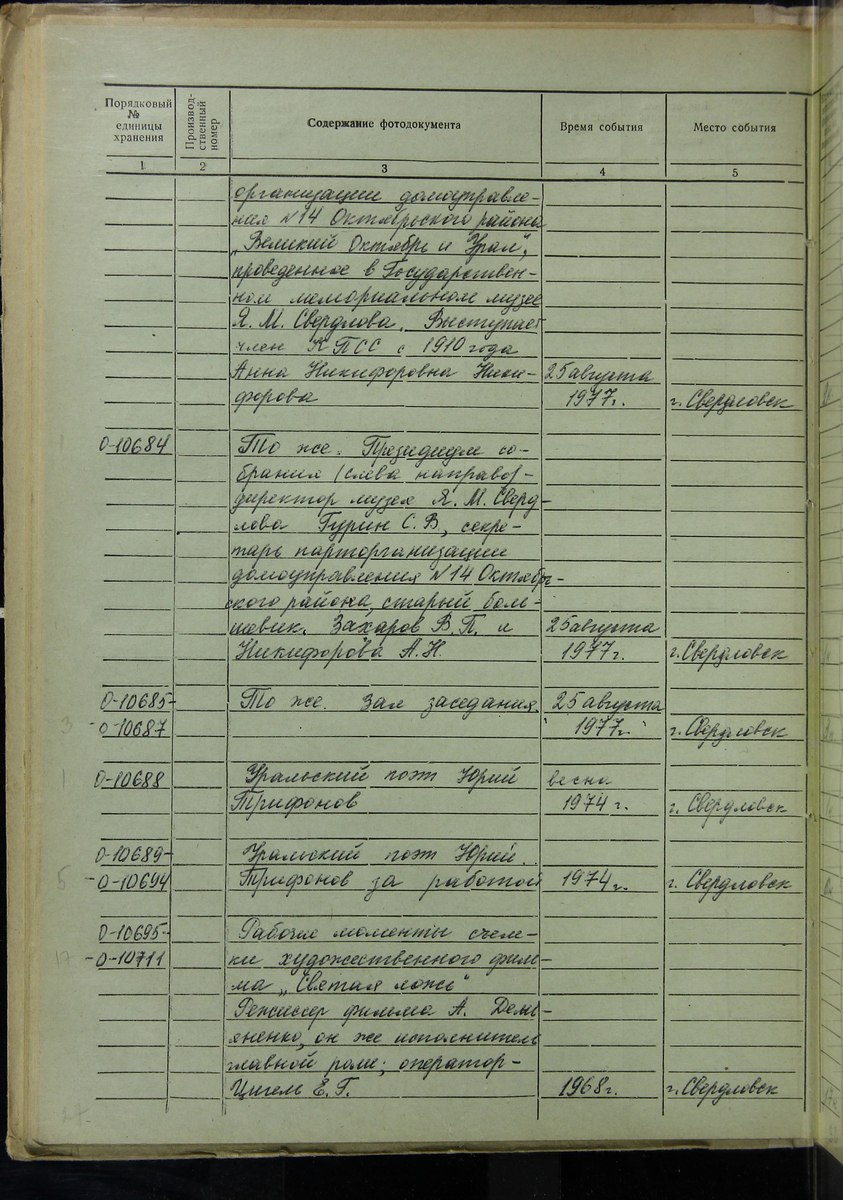 Порядковый № единицы хранения
Производственный номер
Содержание фотодокумента
Время события
Место события
1 2 3 4 5
организации домоуправле-
ния N 14 Октябрьского района
„Великий Октябрь и Урал",
проведенное в Государствен-
ном мемориальном музее
Я. М. Свердлова. Выступает
член КПСС с 1910 года
Анна Никифоровна Ники- 25 августа
форова 1977г. г. Свердловск
0-10684 То же. Президиум со-
брания (слева направо) -
директор музея Я. М. Сверд-
лова Гурин С. В., секре-
тарь парторганизации
домоуправления N 14 Октябрь-
ского района, старый боль-
шевик. Захаров В. П. и 25 августа
Никифорова А. Н. 1977г. г. Свердловск
0-10685- То же. Зал заседания 25 августа
3 -0-10687 1977г. г. Свердловск
1 0-10688 Уральский поэт Юрий весна
Трифонов 1974 г. г. Свердловск
0-10689- Уральский поэт Юрий
5 -0-10694 Трифонов за работой 1974г. г. Свердловск
0-10695- Рабочие моменты съем-
17 -0-10711 ки художественного филь-
ма „Святая ложь"
Режиссер фильма А. Демь-
яненко, он же исполнитель
главной роли; оператор -
Цигель Е. Г. 1968г. г. Свердловск
27